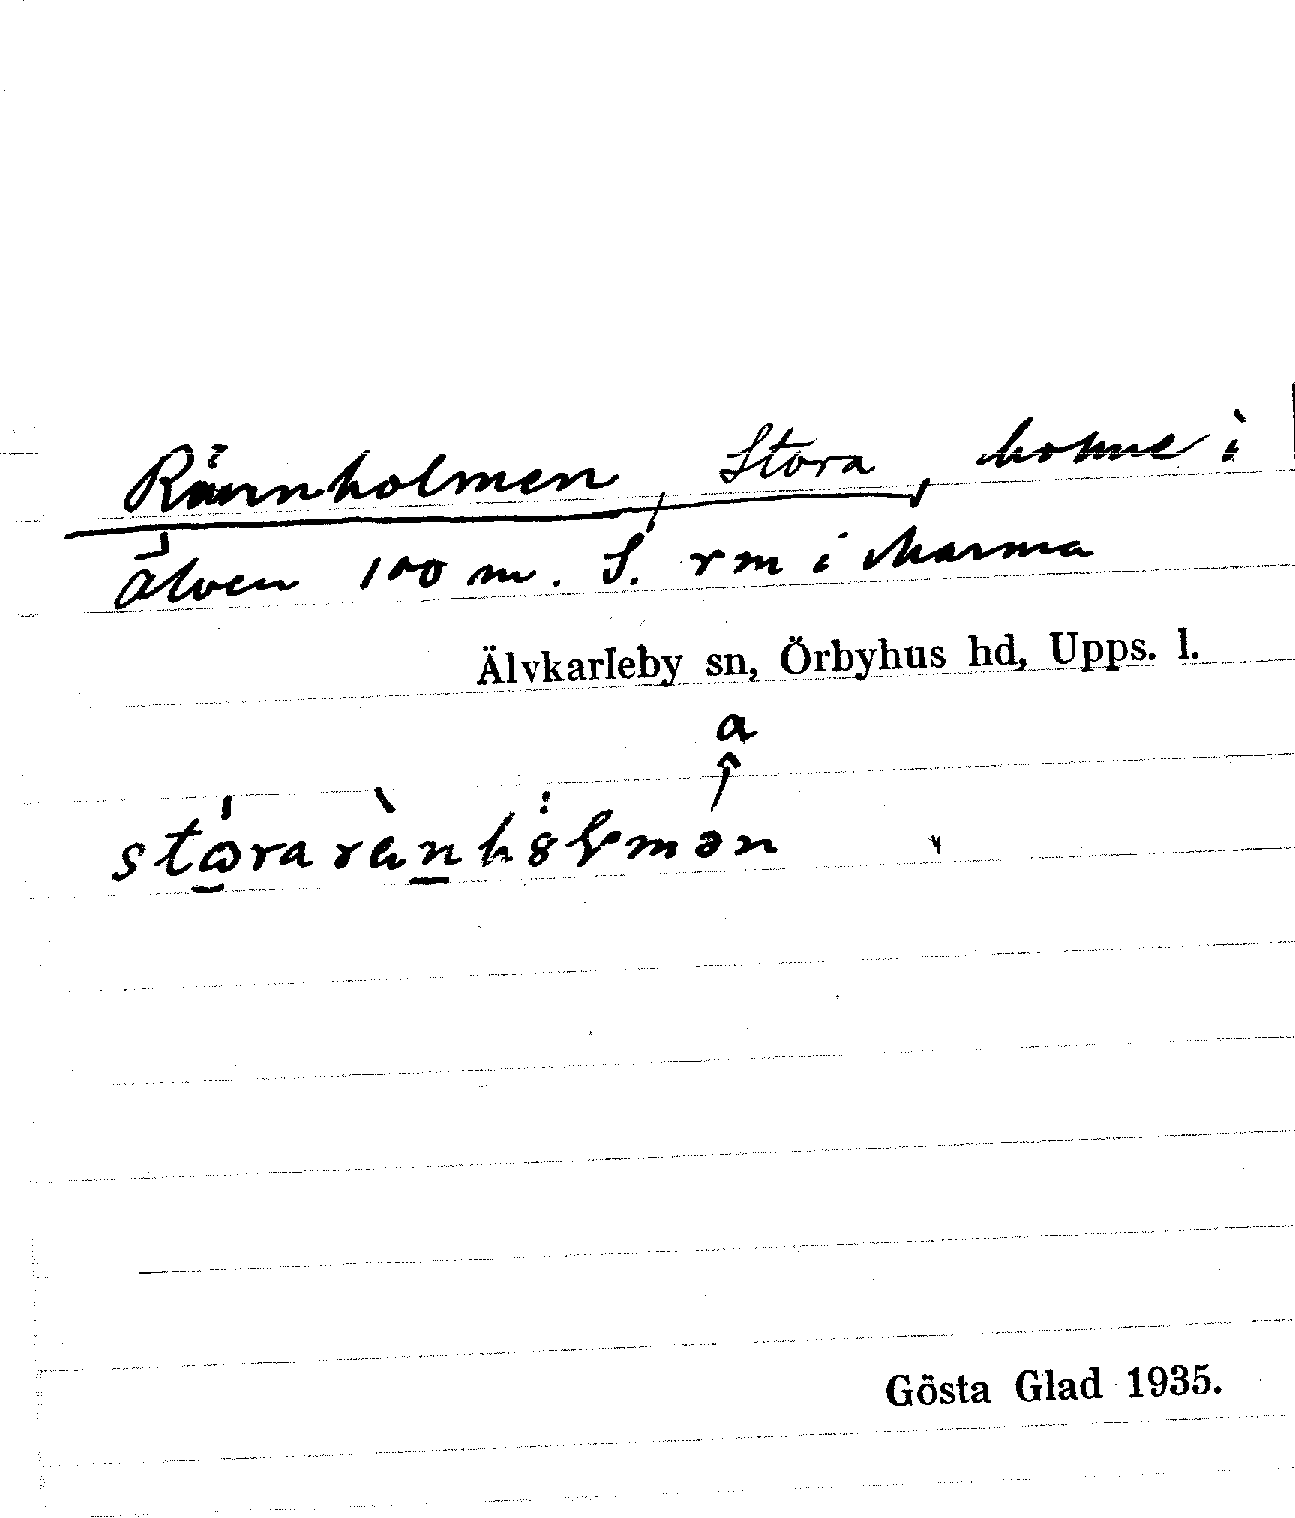 Rännholmen, Stora, holme i
älven 100 m. S. rm i Marma
Älvkarleby sn, Örbyhus hd, Upps. l.
a
Gösta Glad 1935.